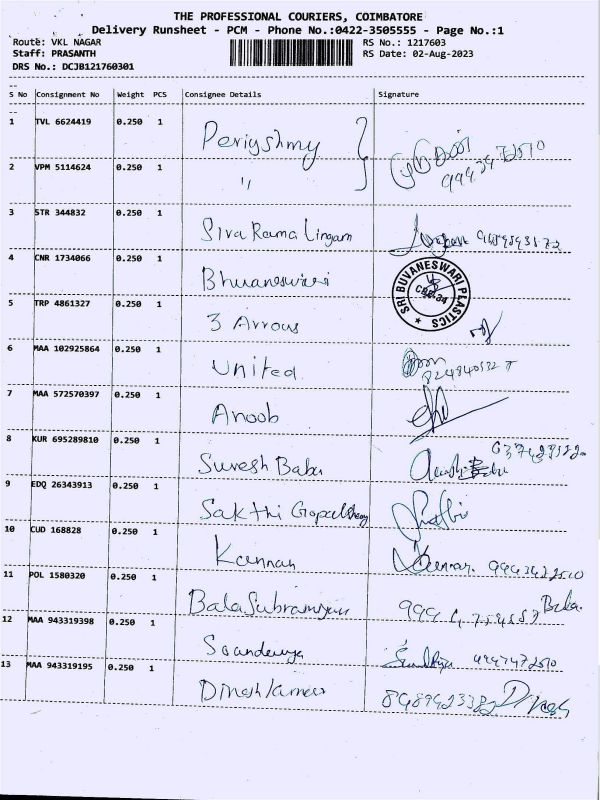 THE PROFESSIONAL COURIERS, COIMBATORE
Delivery Runsheet - PCM - Phone No.:0422-3505555 - Page No.:1
Route: VKL NAGAR
Staff: PRASANTH
DRS No.: DCJB121760301
RS No.: 1217603
RS Date: 02-Aug-2023
S No Consignment No Weight PCS Consignee Details Signature
1 TVL 6624419 0.250 1
2 VPM 5114624 0.250 1 "
3 STR 344832 0.250 1 Siva Rama Lingam
4 CNR 1734066 0.250 1
SRI BUVANESWARI PLASTICS
CBE-34
5 TRP 4861327 0.250 1 3 Arrows
6 MAA 102925864 0.250 1 United
7 MAA 572570397 0.250 1 Anoob
8 KUR 695289810 0.250 1 Suresh Babu
9 EDQ 26343913 0.250 1 Sakthi
10 CUD 168828 0.250 1 Kannan Kannan
11 POL 1580320 0.250 1 Bala Bala
12 MAA 943319398 0.250 1
13 MAA 943319195 0.250 1 Dinesh Dinesh